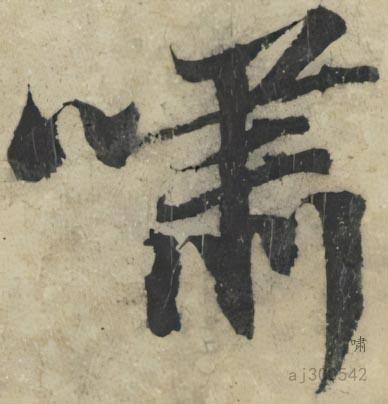 嘯
嘯
aj300542